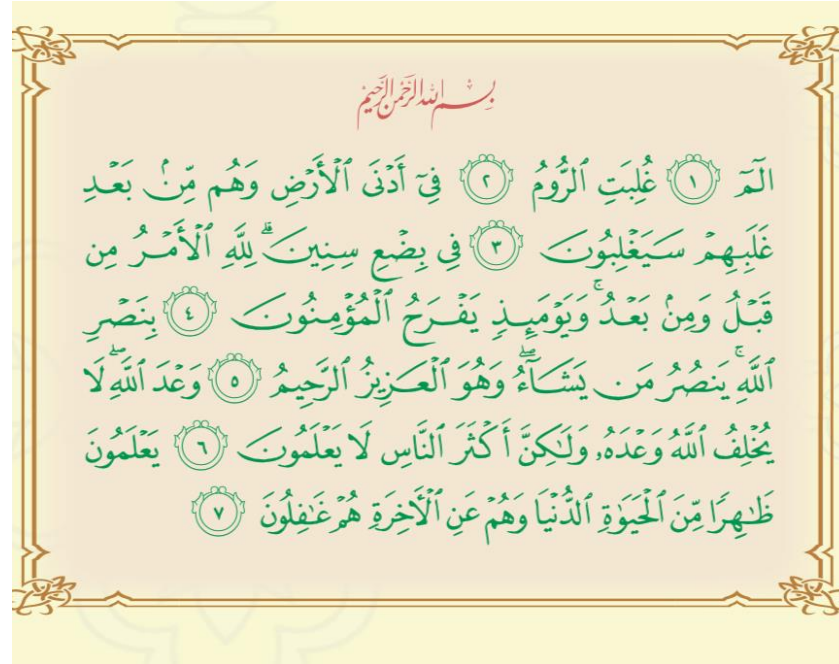 بِسْمِ اللهِ الرَّحْمٰنِ الرَّحِيْمِ
الٓمٓ ١ غُلِبَتِ ٱلرُّومُ ٢ فِىٓ أَدْنَى ٱلْأَرْضِ وَهُم مِّنۢ بَعْدِ
غَلَبِهِمْ سَيَغْلِبُونَ ٣ فِى بِضْعِ سِنِينَ ۗ لِلَّهِ ٱلْأَمْرُ مِن
قَبْلُ وَمِنۢ بَعْدُ ۚ وَيَوْمَئِذٍ يَفْرَحُ ٱلْمُؤْمِنُونَ ٤ بِنَصْرِ
ٱللَّهِ ۚ يَنصُرُ مَن يَشَآءُ ۖ وَهُوَ ٱلْعَزِيزُ ٱلرَّحِيمُ ٥ وَعْدَ ٱللَّهِ ۖ لَا
يُخْلِفُ ٱللَّهُ وَعْدَهُۥ وَلَـٰكِنَّ أَكْثَرَ ٱلنَّاسِ لَا يَعْلَمُونَ ٦ يَعْلَمُونَ
ظَـٰهِرًا مِّنَ ٱلْحَيَوٰةِ ٱلدُّنْيَا وَهُمْ عَنِ ٱلْـَٔاخِرَةِ هُمْ غَـٰفِلُونَ ٧